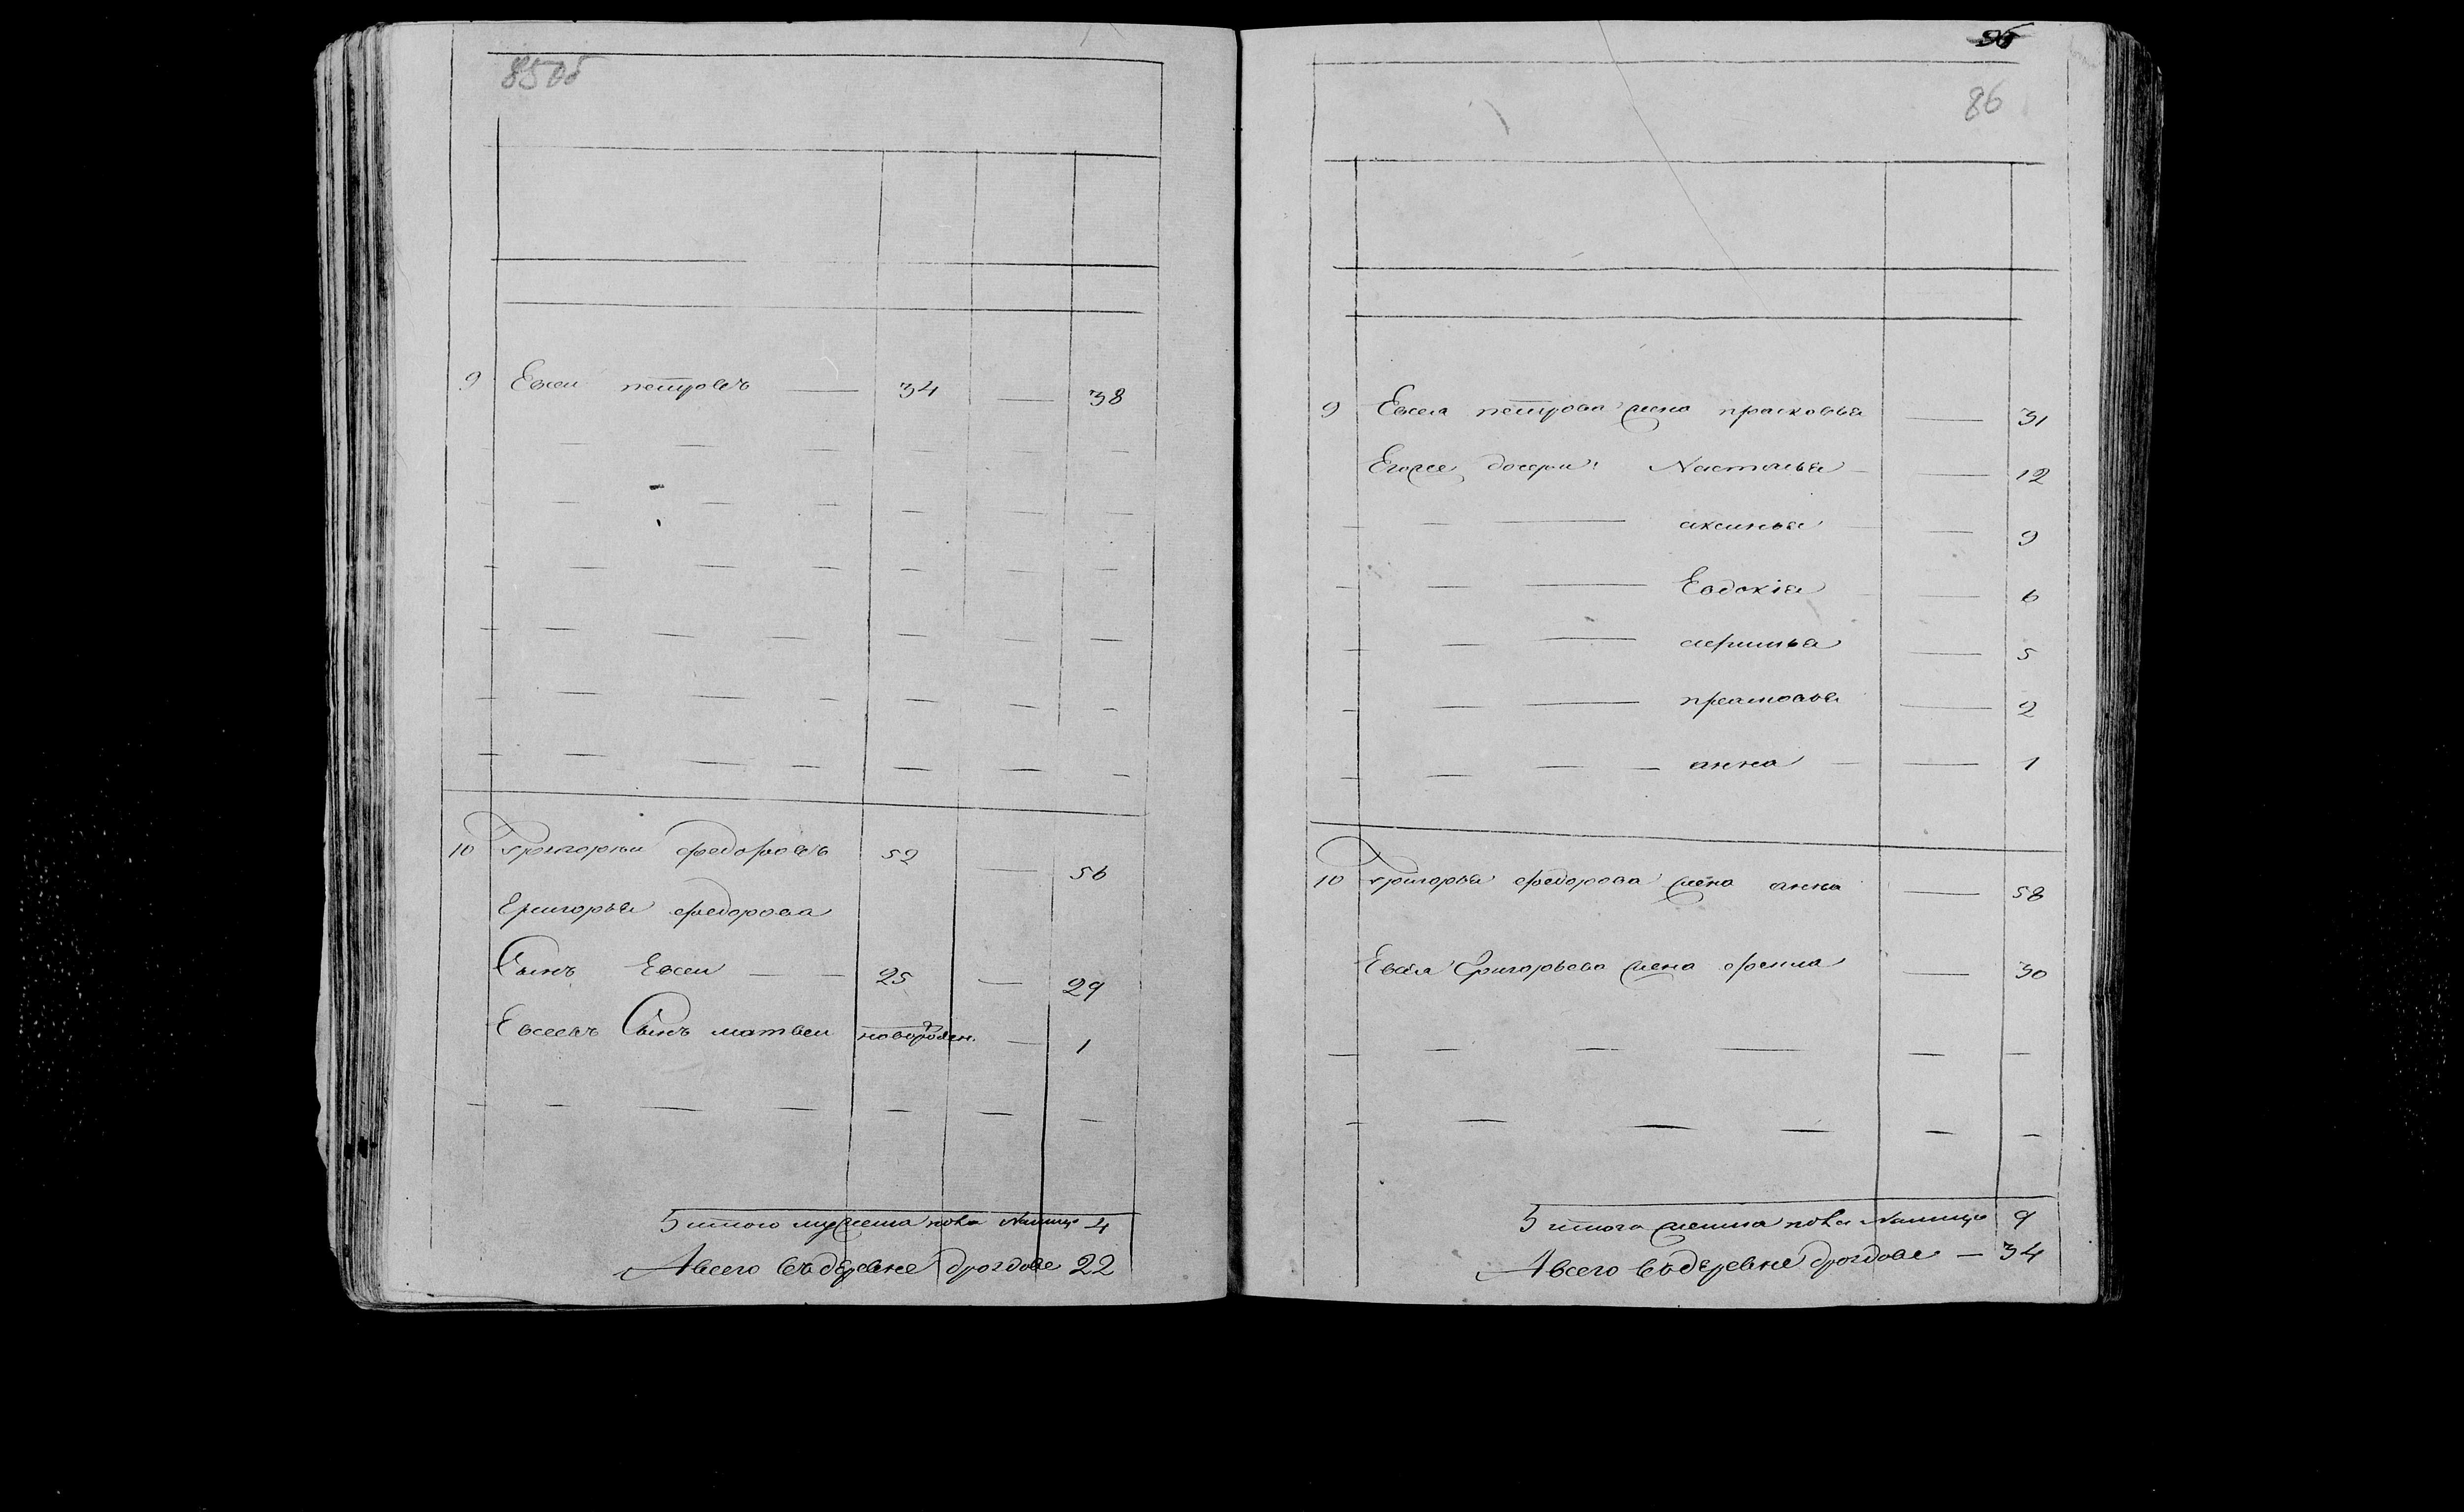 85об
9 Евсеи петровъ — 34 — 38
10 Григореи федоровъ 52 — 56
Григорья федорова
Сынъ Евсеи — — 25 — 29
Евсеевъ Сынъ матвеи новорожден. — 1
Итого мужеска пола Налицо 4
А всего въ деревне дроздове 22
86
9 Евсея петрова жена прасковья — 31
Егоже дочери Настасья — 12
аксинья — 9
Евдокія — 6
— 5
— 2
анна — 1
10 Григорья федорова жена анна — 58
Евсея Григорьева жена — 30
Итого женска пола Налицо 9
А всего въ деревне дроздове — 34